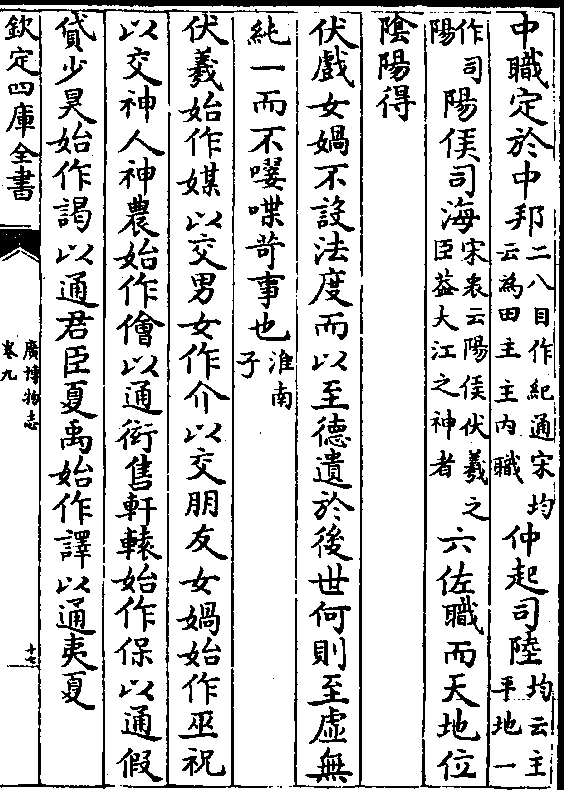 中職定於中邦二八目作紀通宋均云為田主主内職仲起司陸均云主平地一
作司陽陽侯司海宋衷云陽侯伏羲之臣葢大江之神者六佐職而天地位
陰陽得
伏戲女媧不設法度而以至德遺於後世何則至虛無
純一而不嘤喋苛事也淮南子
伏羲始作媒以交男女作介以交朋友女媧始作巫祝
以交神人神農始作儈以通衒售軒轅始作保以通假
貸少昊始作謁以通君臣夏禹始作譯以通夷夏
欽定四庫全書
廣博物志
卷九
十七